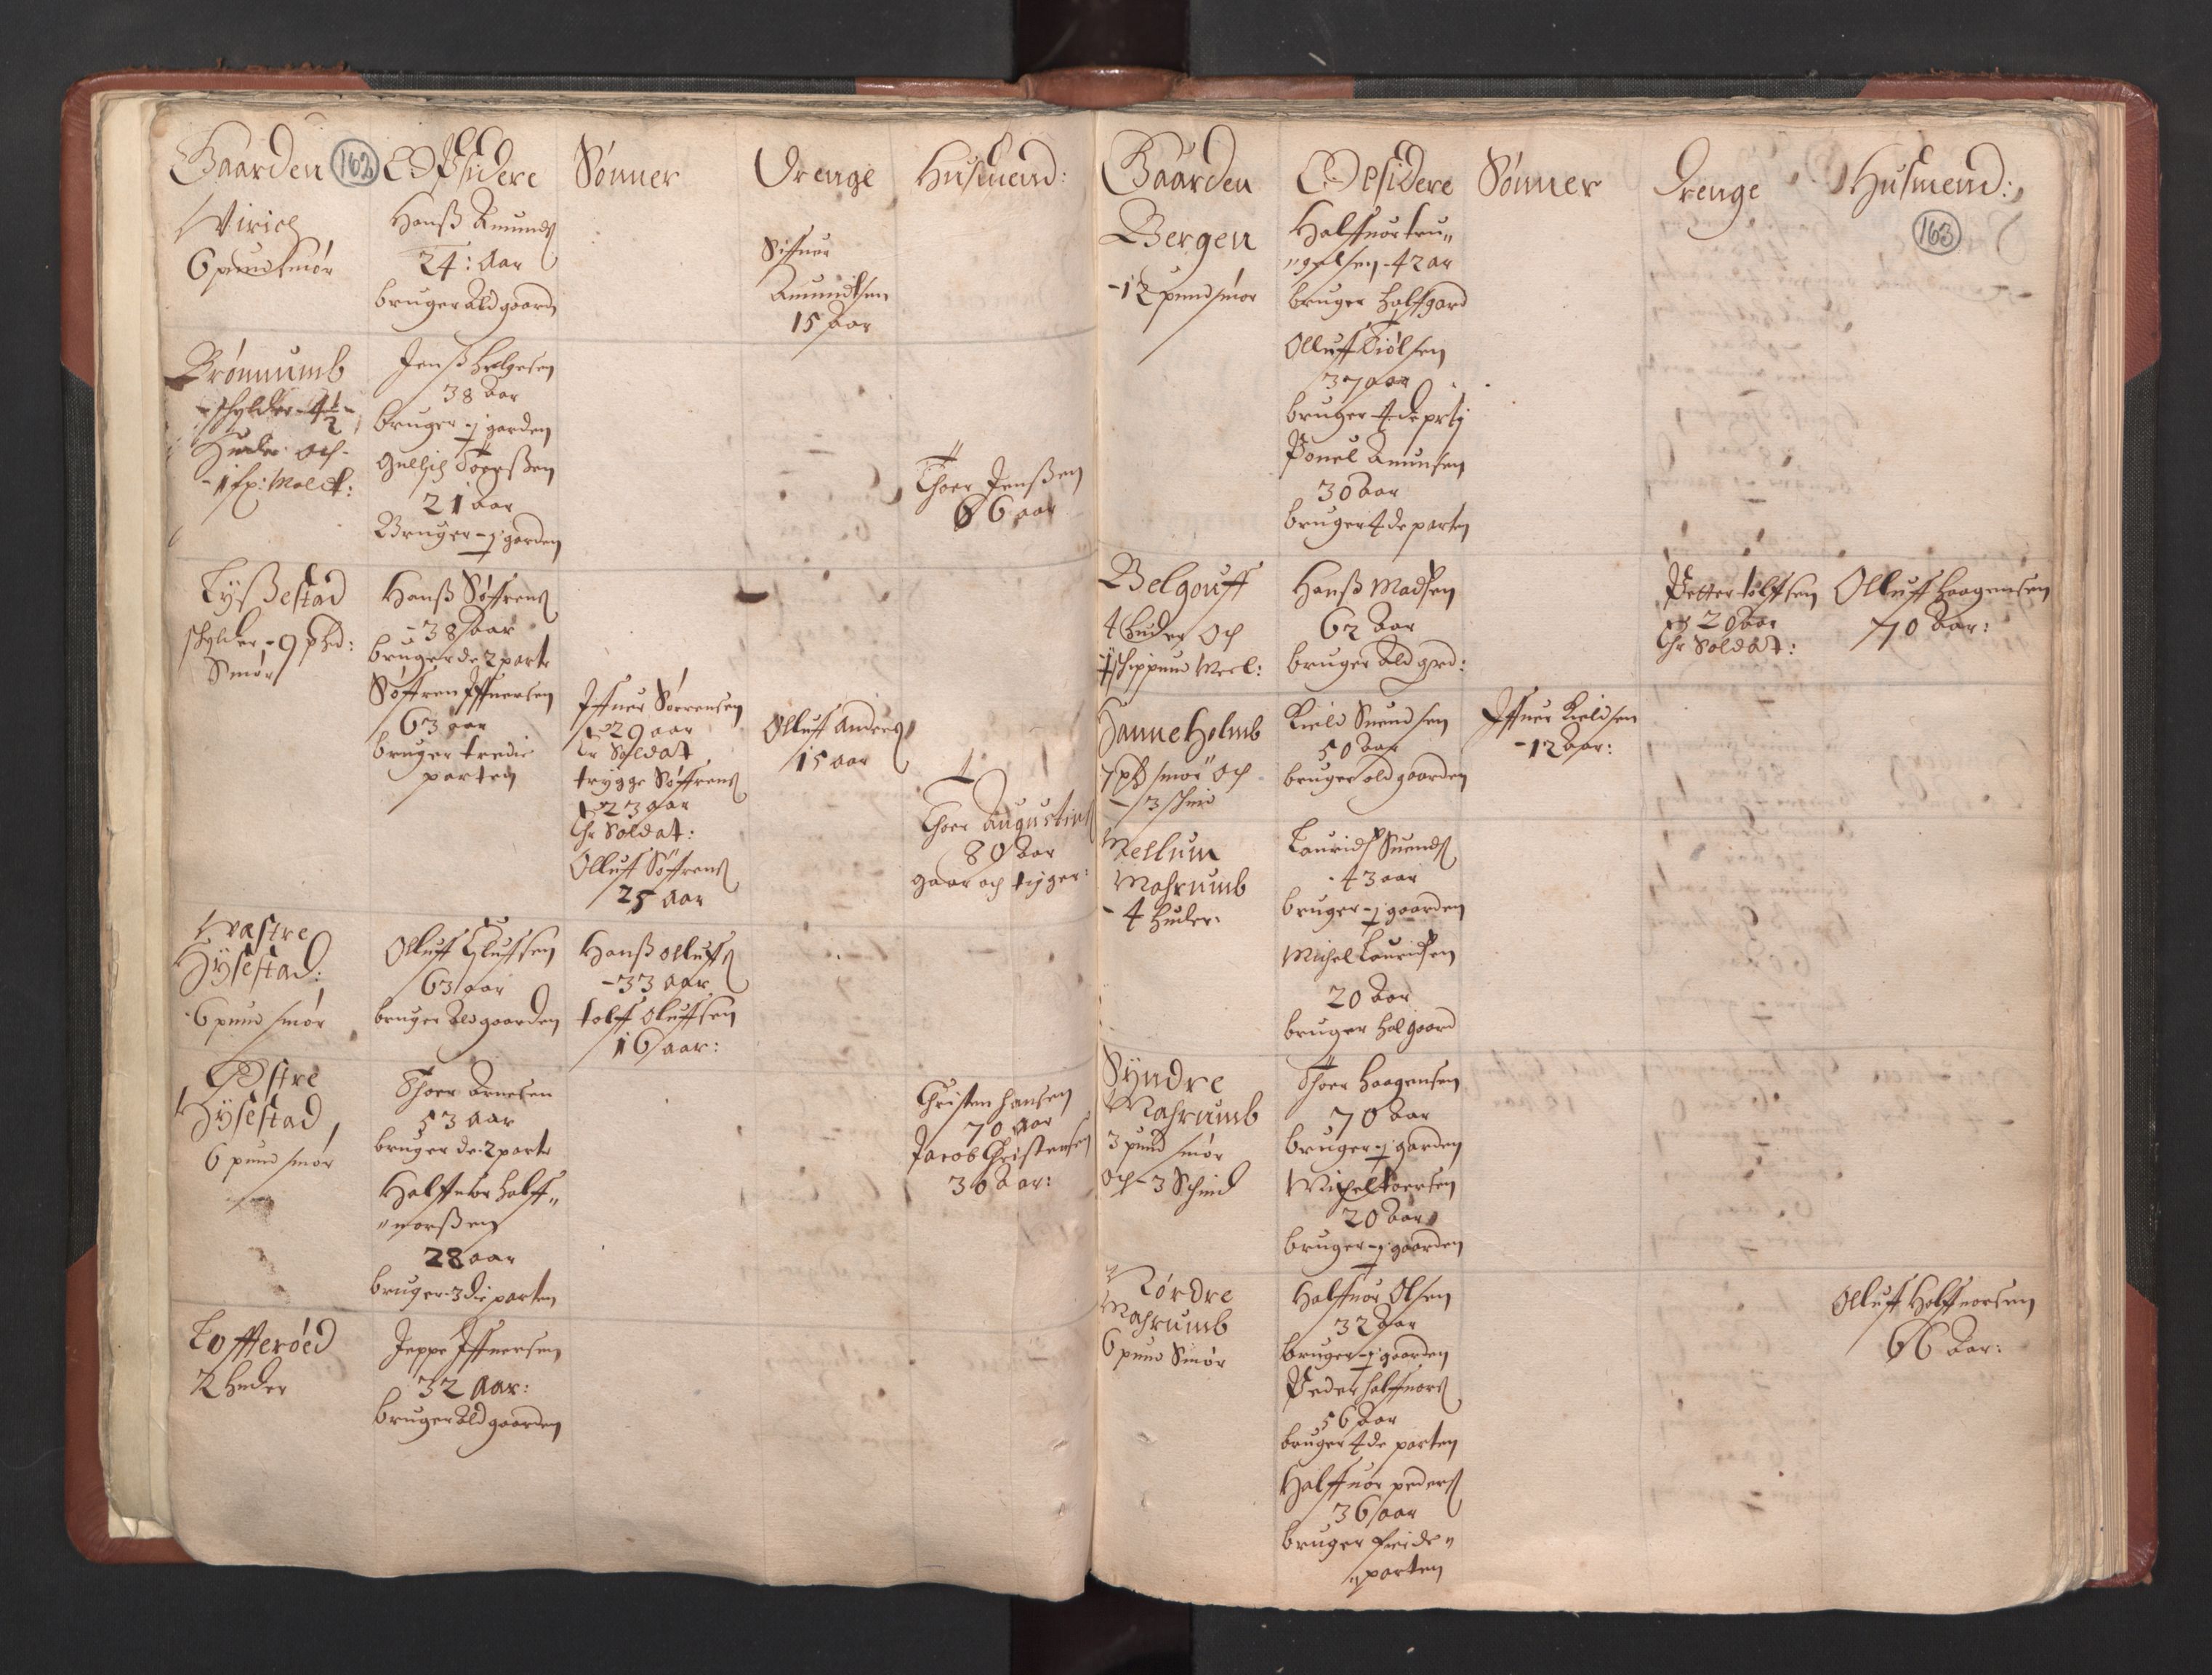 Gaarden 162 Opsidere Sønner Drenge Husmend:
Wirich
6 pund smør
Hanß Amunds
24: Aar
bruger Ald gaard
Siffuer
Amundsen
15 Aar
Brønnumb
schylder 4½
Huder och
1 sp: Malt:
Jenß helgesen
38 Aar
bruger ½ garden
Gulich Toerßen
21 Aar
Bruger ½ garden
Thoer Jenßen
66 aar
Lyßestad
schylder 9 pd:
Smør
Hanß Søffrens
38 aar
bruger de 2 parte
Søffren Iffuersen
63 aar
bruger tredie
parten
Iffuer Sørrensen
29 aar
Er Soldat
trygge Søffrens
23 aar
Er Soldat:
Olluff Søffrens
25 Aar
Olluff Anders
15 aar
Thoer Augustins
80 Aar
gaar och tigger:
Wæstre
Hysestad:
6 pund smør
Olluff Gluffsen
63 aar
bruger Ald gaarden
Hanß olluffs
33 aar
tolff oluffsen
16 aar:
Østre
Hysestad,
6 pund smør
Thoer Arnesen
53 Aar
bruger de 2 parte
Halffuor halff„
„uorßen
28 aar
bruger 3die parten
Christen hansen
70 Aar
Jacob Christensen
30 Aar:
Lofferöed
2 huder
Jeppe Iffuersen
32 Aar:
bruger Ald gaarden
Gaarden Opsidere Sønner Drenge Husmend:
163
Bergen
12 pund smør
Halffuor tru„
„gelsen 42 ar
bruger halfgard
Olluff Kiølsen
37 aar
bruger 4de prtj
Pouel Amunsen
30 Aar
bruger 4de parten
Belgouff
4 huder Och
1 schippund Meel:
Hanß Madsen
62 Aar
bruger Ald grd:
Petter tolffsen
20 Aar
Er Soldat:
Olluff haagensen
70 Aar:
Hanneholmb
7 pd smør Och
3 schind
Kield Suendsen
50 Aar
bruger ald gaarden
Iffuer Kieldsen
12 Aar:
Mellum
Mahrumb
4 huder:
Laurids Suends
43 aar
bruger ½ gaarden
Michel Lauridsen
20 Aar
bruger hal gaard
Syndre
Mahrumb
3 pund smør
och 3 Schind
Thoer haagensen
70 Aar
bruger ½ garden
Michel toersen
20 Aar
bruger ½ gaarden
Nørdre
Mahrumb
6 pund Smør
Halffuor Olsen
32 Aar
bruger ½ gaarden
Peder halffuors
56 Aar
bruger 4de parten
Halffuor peders
36 aar
bruger fierde„
„parten
Olluff Halffuorsen
66 Aar: